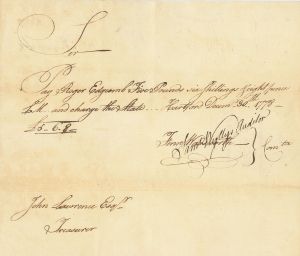 Sir
Pay Roger Edgcomb Five Pounds six Shillings Eight pence
L.M. and charge the State. Hartford Decemr 30th 1778
£5-6-8
Fenn Wadsworth
Saml Wyllys Auditor
Comtee
John Lawrence Esqr
Treasurer